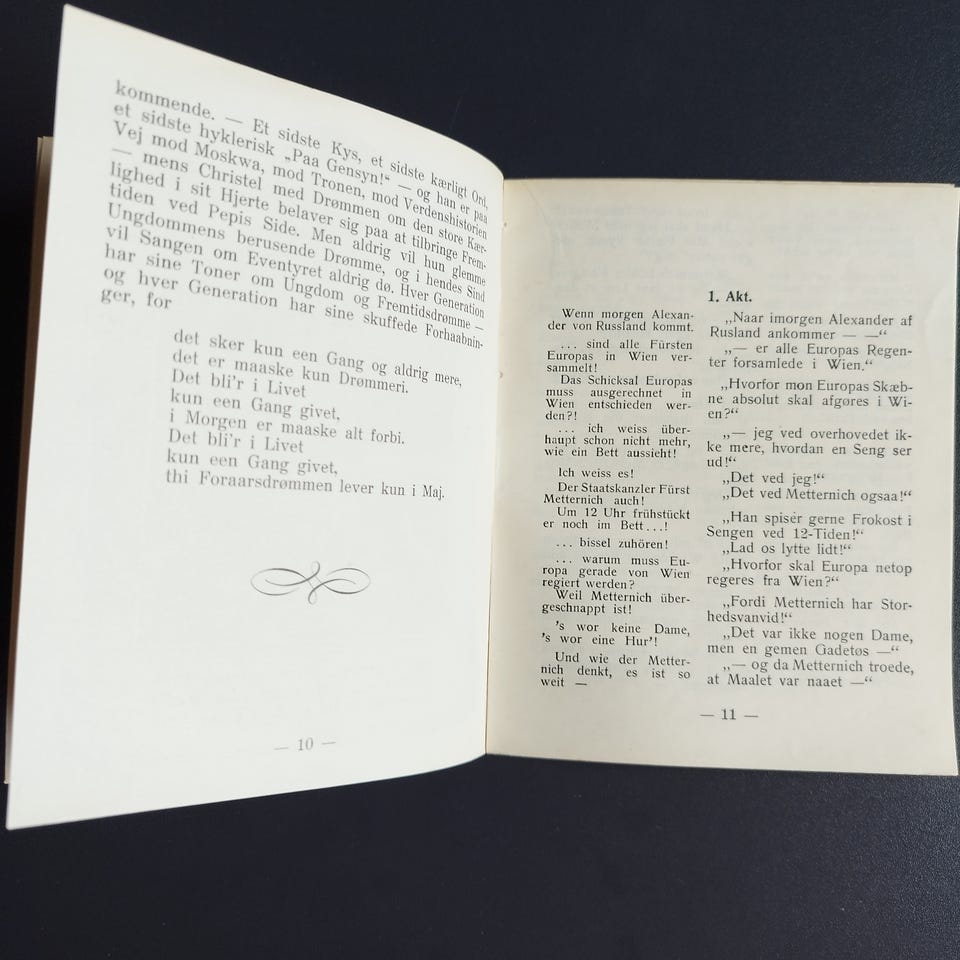 kommende. — Et sidste Kys, et sidste kærligt Ord,
et sidste hyklerisk „Paa Gensyn!“ — og han er paa
Vej mod Moskwa, mod Tronen, mod Verdenshistorien
— mens Christel med Drømmen om den store Kær-
lighed i sit Hjerte belaver sig paa at tilbringe Frem-
tiden ved Pepis Side. Men aldrig vil hun glemme
Ungdommens berusende Drømme, og i hendes Sind
vil Sangen om Eventyret aldrig dø. Hver Generation
har sine Toner om Ungdom og Fremtidsdrømme —
og hver Generation har sine skuffede Forhaabnin-
ger, for
det sker kun een Gang og aldrig mere,
det er maaske kun Drømmeri.
Det bli'r i Livet
kun een Gang givet,
i Morgen er maaske alt forbi.
Det bli'r i Livet
kun een Gang givet,
thi Foraarsdrømmen lever kun i Maj.
— 10 —
1. Akt.
Wenn morgen Alexan-
der von Russland kommt.
... sind alle Fürsten
Europas in Wien ver-
sammelt!
Das Schicksal Europas
muss ausgerechnet in
Wien entschieden wer-
den?!
... ich weiss über-
haupt schon nicht mehr,
wie ein Bett aussieht!
Ich weiss es!
Der Staatskanzler Fürst
Metternich auch!
Um 12 Uhr frühstückt
er noch im Bett...!
... bissel zuhören!
... warum muss Eu-
ropa gerade von Wien
regiert werden?
Weil Metternich über-
geschnappt ist!
's wor keine Dame,
's wor eine Hur'!
Und wie der Metter-
nich denkt, es ist so
weit —
„Naar imorgen Alexander af
Rusland ankommer — —“
„— er alle Europas Regen-
ter forsamlede i Wien.“
„Hvorfor mon Europas Skæb-
ne absolut skal afgøres i Wi-
en?“
„— jeg ved overhovedet ik-
ke mere, hvordan en Seng ser
ud!“
„Det ved jeg!“
„Det ved Metternich ogsaa!“
„Han spiser gerne Frokost i
Sengen ved 12-Tiden!“
„Lad os lytte lidt!“
„Hvorfor skal Europa netop
regeres fra Wien?“
„Fordi Metternich har Stor-
hedsvanvid!“
„Det var ikke nogen Dame,
men en gemen Gadetøs —“
„— og da Metternich troede,
at Maalet var naaet —“
— 11 —